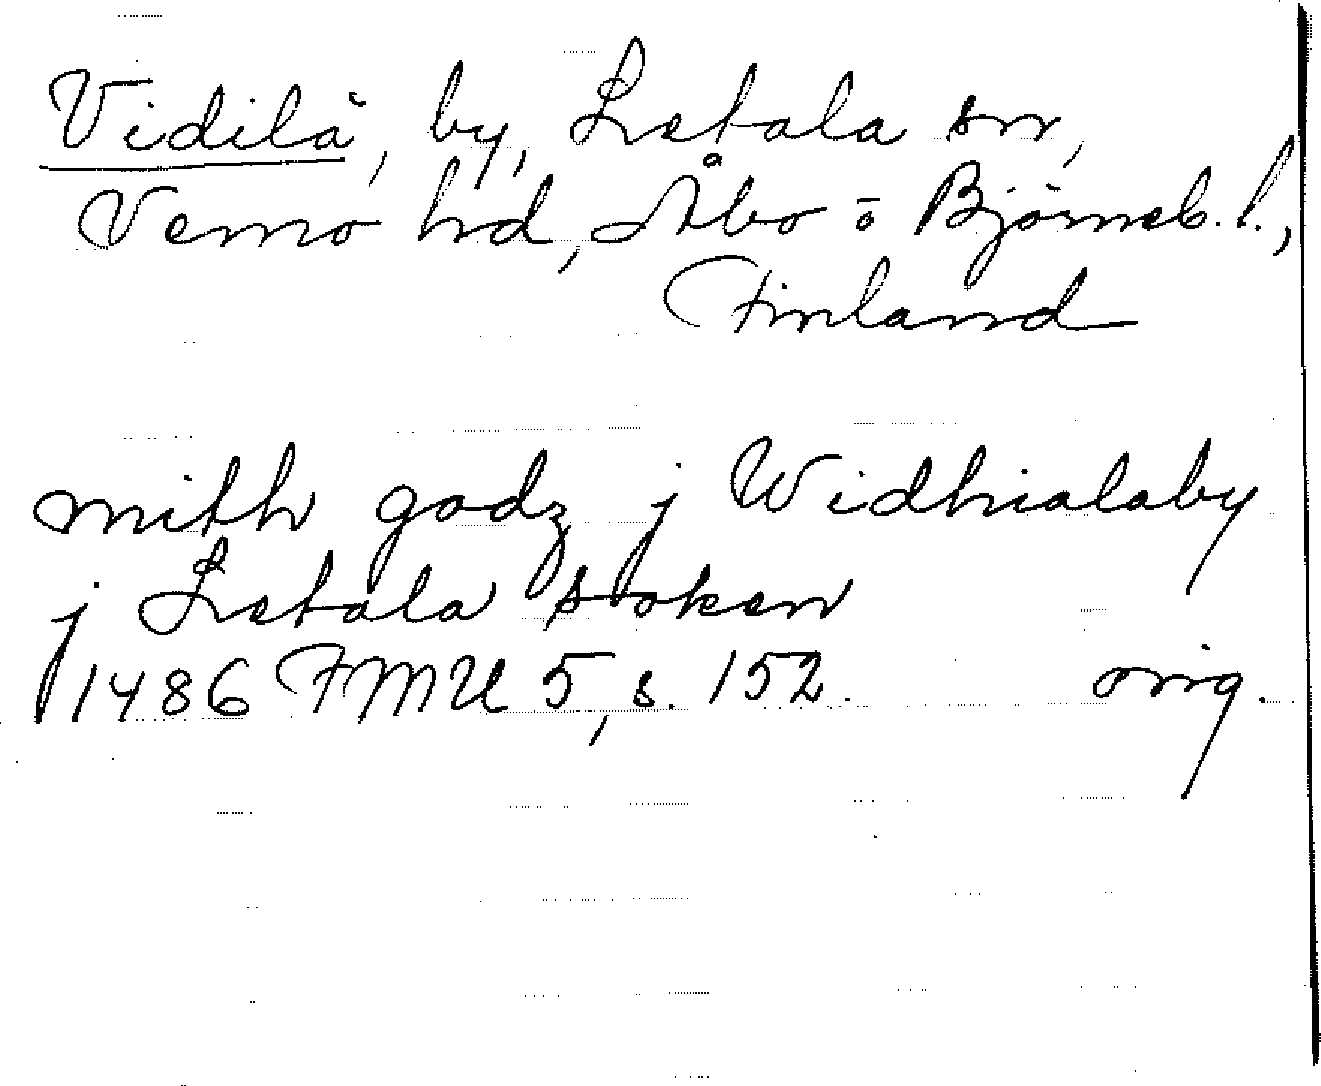 Vidilä, by, Letala sn,
Vemo hd, Åbo o Björneb. l.,
Finland
mith godz j Widhialaby
j Letala soken
1486 FMU 5, s. 152. orig.